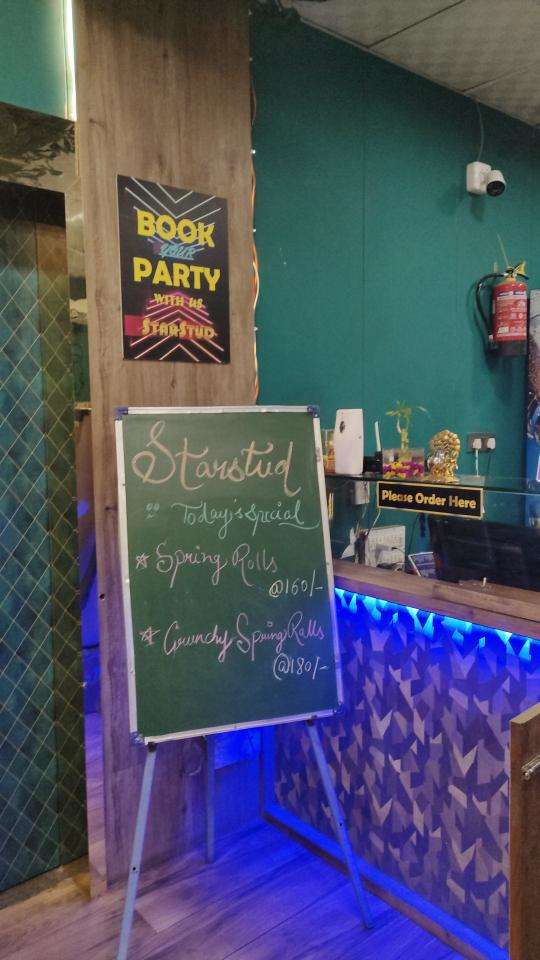 BOOK
YOUR
PARTY
WITH US
STARSTUD
Starstud
Today's special
Spring Rolls
@160/-
Crunchy Spring Rolls
@180/-
Please Order Here